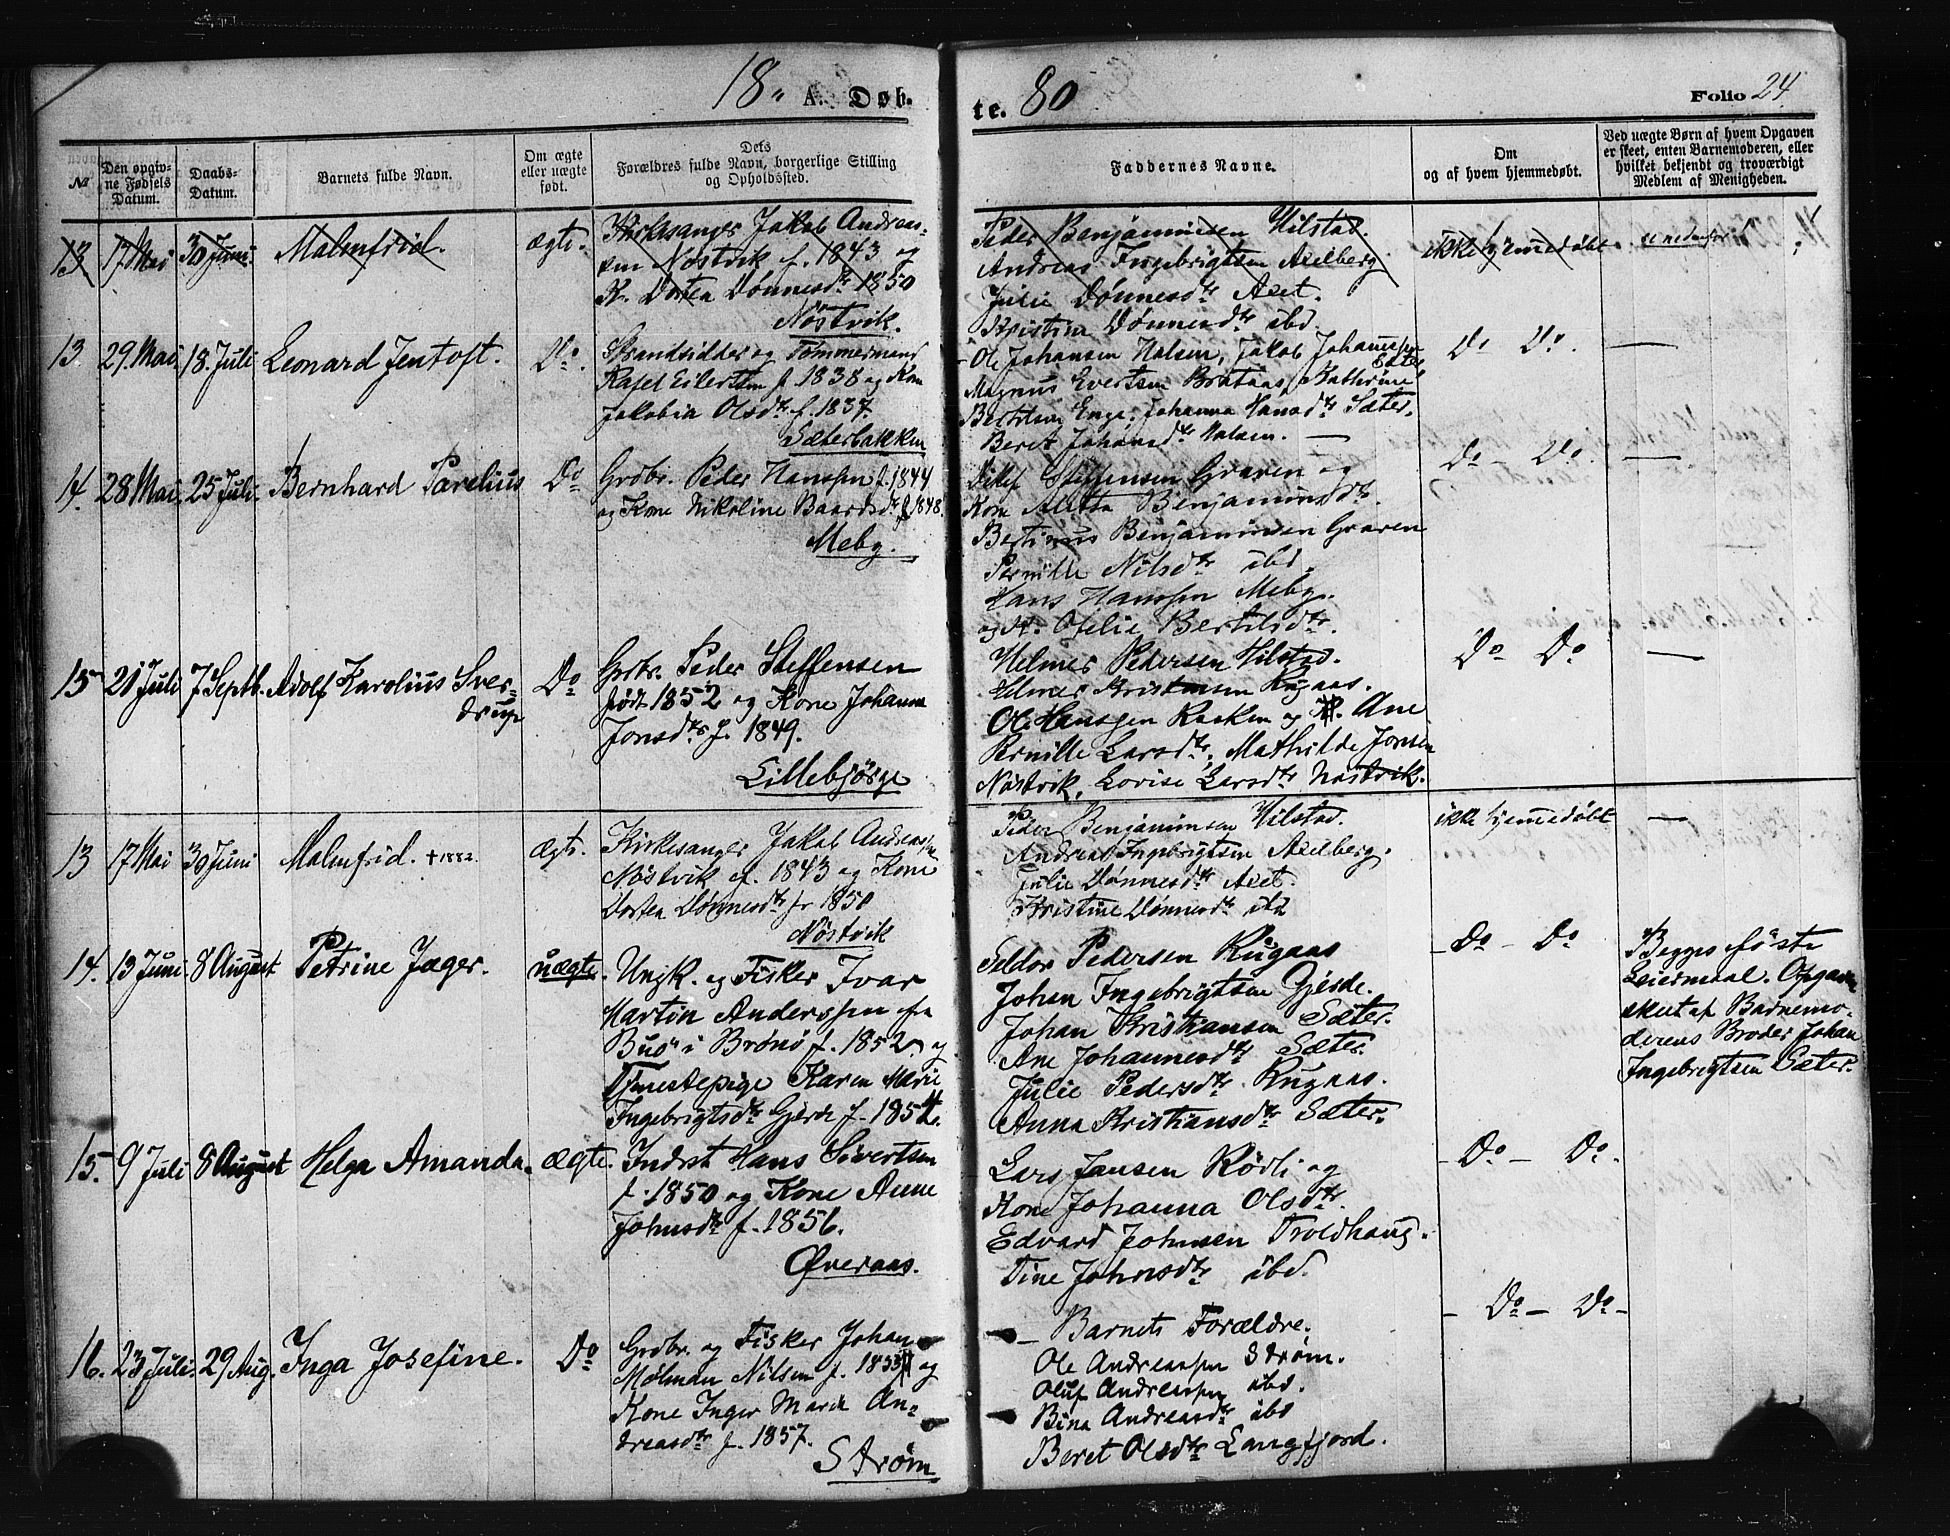 18
A. Døb-
te. 80
Folio 24
№
Den opgiv-
ne Fødsels
Datum.
Daabs-
Datum.
Barnets fulde Navn.
Om ægte
eller uægte
født.
Dets
Forældres fulde Navn, borgerlige Stilling
og Opholdssted.
Faddernes Navne.
Om
og af hvem hjemmedøbt.
Ved uægte Børn af hvem Opgaven
er skeet, enten Barnemoderen, eller
hvilket bekjendt og troværdigt
Medlem af Menigheden.
13 17 Mai 30 Juni Malmfrid. ægte
Kirkesanger Jakob Andreas-
sen Nöstvik f. 1843 og
K. Dorten Dönnesdtr 1850
Nöstvik.
Peder Benjaminsen Hilstad.
Andreas Ingebrigtsen Axelberg
Julie Dönnesdtr Axet.
Kristina Dönnesdtr ibd.
ikke hjemmedöbt
se nedenfor!
13. 29. Mai 18. Juli Leonard Jentoft. Do.
Strandsidder og Tömmermand
Rafel Eilertsen f. 1838 og Kone
Jakobia Olsdtr f. 1837.
Sæterbakken
Ole Johansen Halsen, Jakob Johannessen
Sæter
Magnus Evertsen Brataas, Kathrine
Bertitsen Enge, Johanna Hansdtr Sæter.
Beret Johansdtr Halsen. —
Do Do. —
14. 28 Mai 25 Juli. Bernhard Parelius Do
Grdbr. Peder Hanssen f. 1844
og Kone Nikoline Baardsdtr f 1848.
Meby.
Detlef Steffensen Graven og
Kone Aletta Benjaminsdtr.
Bertinus Benjaminsen Graven
Pernille Nilsdtr ibd.
Hans Hanssen Meby.
og K. Ofelie Bertilsdtr.
Do — Do. —
15 21 Juli 7 Septb. Adolf Karolius Sver-
drup Do
Grbr. Peder Steffensen
født 1852 og Kone Johanna
Jonsdtr f. 1849.
Lillebjörge
Helmer Pedersen Hilstad.
Helmer Kristensen Rugaas.
Ole Hanssen Rasken og P. Ane
Pernille Larsdtr, Mathilde Jonsen
Nöstvik, Lovise Larsdtr Nöstvik.
Do Do —
13 17 Mai 30 Juni Malmfrid. † 1882. Ægte.
Kirkesanger Jakob Andreassen
Nöstvik f. 1843 og Kone
Dorten Dönnesdtr f. 1850
Nöstvik
Peder Benjaminsen Hilstad.
Andreas Ingebrigtsen Axelberg.
Julie Dönnesdtr Axet.
Kristine Dönnesdtr ibd
ikke hjemmedöbt —
14. 13 Juni 8 August Petrine Jæger. uægte.
Ungk. og Fisker Ivar
Martin Anderssen fra
Buø i Brønø f. 1852 og
Tjenestepige Karen Marie
Ingebrigtsdtr Gjerde f. 1854.
Seldor Pedersen Rugaas
Johan Ingebrigtsen Gjerde.
Johan Kristiansen Sæter.
Ane Johannesdtr Sæter.
Julie Pedersdtr Rugaas.
Anna Kristiansdtr Sæter.
— Do — Do
Begges første
Leiermaal. Opgaven
skeet af Barnemo-
derens Broder Johan
Ingebrigtsen Sæter.
15. 9 Juli 8 August Helga Amanda. ægte.
Indrst Hans Sivertsen
f. 1850 og Kone Anne
Johnsdtr f. 1856.
Øveraas.
Lars Jansen Rödli og
Kone Johanna Olsdtr.
Edvard Johnsen Troldhaug.
Tine Johnsdtr ibd.
— Do — Do.
16. 23 Juli. 29 Aug. Inga Josefine. Do
Grdbr. og Fisker Johan
Mølman Nilsen f. 1853 og
Kone Inger Marie An-
dreasdtr f. 1857.
Strøm
— Barnets Forældre.
Ole Andreassen Strøm.
Oluf Andreassen ibd.
Bina Andreasdtr ibd
Beret Olsdtr Langfjord.
— Do — Do —